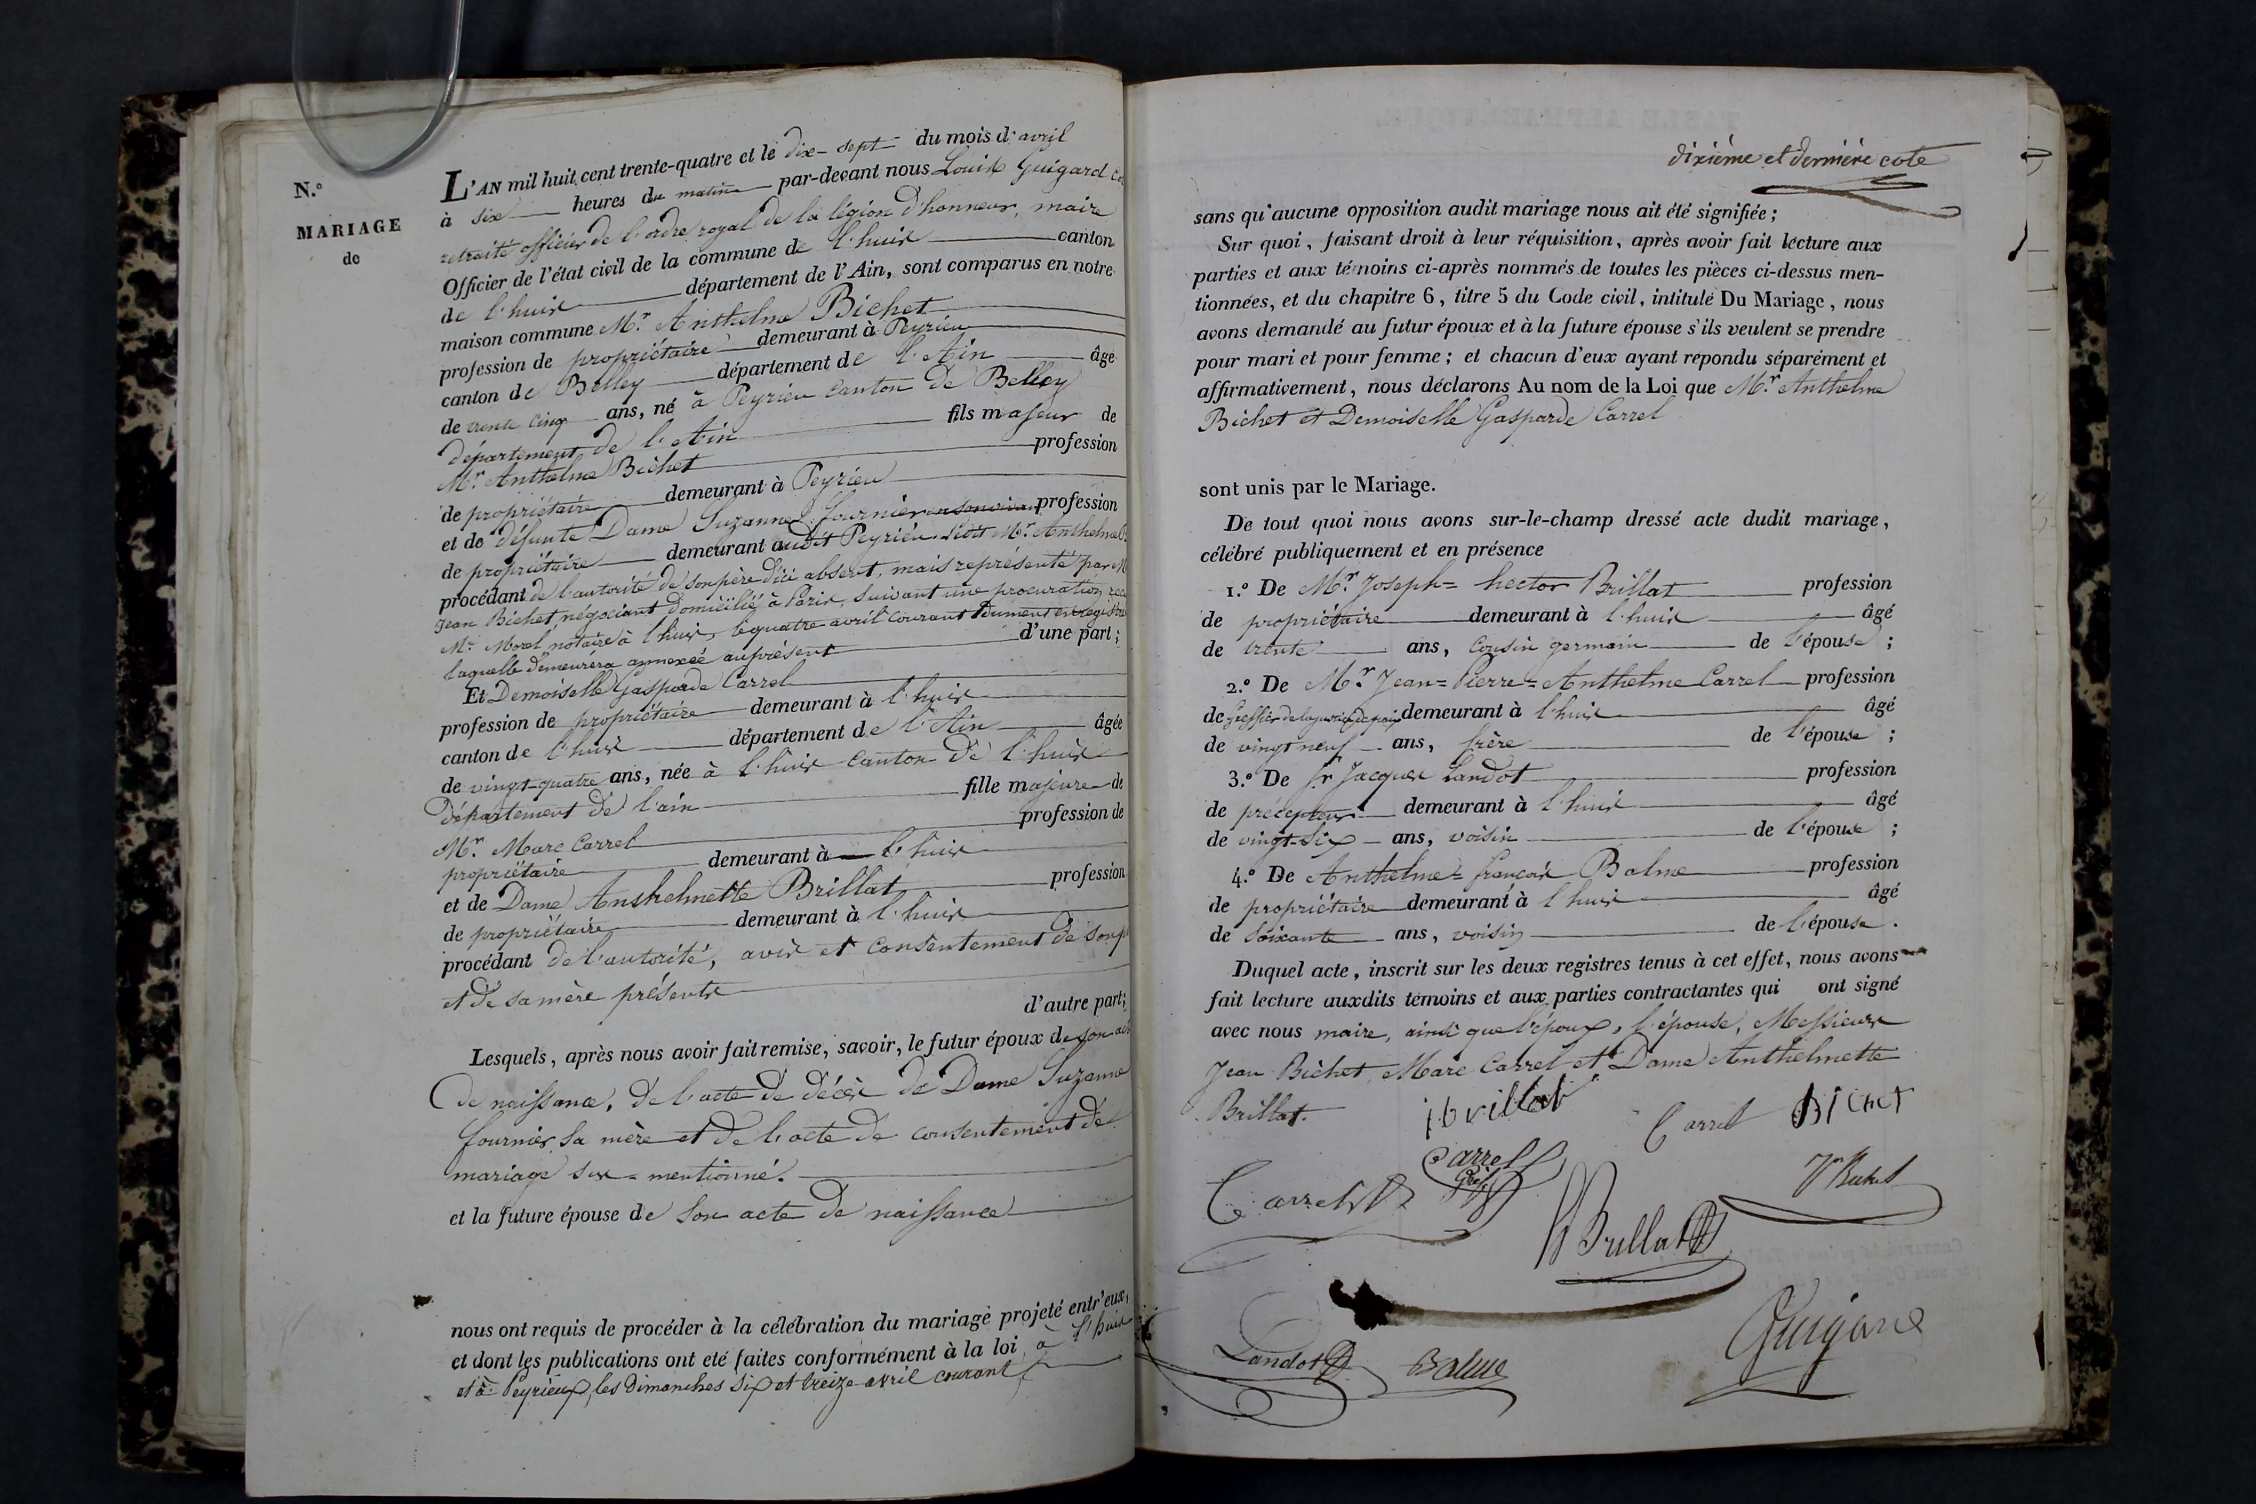 N.°
MARIAGE
de
L'AN mil huit cent trente-quatre et le dix-sept du mois d'avril
à six heures du matin par-devant nous Louis Guigard
retraité officier de l'ordre royal de la légion d'honneur, maire
Officier de l'état civil de la commune de l'huis canton
de l'huis département de l'Ain, sont comparus en notre
maison commune Mr. Anthelme Bichet
profession de propriétaire demeurant à Peyrieu
canton de Belley département de l'Ain âge
de trente cinq ans, né à Peyrieu canton de Belley
département de l'Ain fils majeur de
Mr. Anthelme Bichet profession
de propriétaire demeurant à Peyrieu
et de défunte Dame Suzanne fournier profession
de propriétaire demeurant audit Peyrieu. Ledit Mr. Anthelme
procédant de l'autorité de son père d'ici absent, mais représenté par
Jean Bichet, négociant domicilié à Paris, suivant une procuration
Me. Morel notaire à l'huis, le quatre avril courant dument enregistré
laquelle demeurera annexée au présent d'une part;
Et Demoiselle Gasparde Carrel
profession de propriétaire demeurant à l'huis
canton de l'huis département de l'Ain âgée
de vingt-quatre ans, née à l'huis canton de l'huis
département de l'ain fille majeure de
Mr. Marc Carrel profession de
propriétaire demeurant à l'huis
et de Dame Anthelmette Brillat profession
de propriétaire demeurant à l'huis
procédant de l'autorité, avis et consentement de son
et de sa mère présents
d'autre part;
Lesquels, après nous avoir fait remise, savoir, le futur époux de son
de naissance, de l'acte de décès de Dame Suzanne
fournier sa mère et de l'acte de consentement de
mariage sus=mentionné.
et la future épouse de son acte de naissance
nous ont requis de procéder à la célébration du mariage projeté entr'eux,
et dont les publications ont eté faites conformément à la loi à l'huis
et à Peyrieux, les dimanches six et treize avril courant
dixième et dernière cote
sans qu'aucune opposition audit mariage nous ait été signifiée;
Sur quoi, faisant droit à leur réquisition, après avoir fait lecture aux
parties et aux témoins ci-après nommés de toutes les pièces ci-dessus men-
tionnées, et du chapitre 6, titre 5 du Code civil, intitulé Du Mariage, nous
avons demandé au futur époux et à la future épouse s'ils veulent se prendre
pour mari et pour femme; et chacun d'eux ayant repondu séparément et
affirmativement, nous déclarons Au nom de la Loi que Mr. Anthelme
Bichet et Demoiselle Gasparde Carrel
sont unis par le Mariage.
De tout quoi nous avons sur-le-champ dressé acte dudit mariage,
célébré publiquement et en présence
1.° De Mr. Joseph=hector Brillat profession
de propriétaire demeurant à l'huis âgé
de trente ans, cousin germain de l'épouse;
2.° De Mr. Jean=Pierre=Anthelme Carrel profession
de Greffier de la justice de paix demeurant à l'huis âgé
de vingt neuf ans, frère de l'épouse;
3.° De Sr. Jacques Landot profession
de précepteur demeurant à l'huis âgé
de vingt-six ans, voisin de l'épouse;
4.° De Anthelme=françois Balme profession
de propriétaire demeurant à l'huis âgé
de soixante ans, voisin de l'épouse.
Duquel acte, inscrit sur les deux registres tenus à cet effet, nous avons
fait lecture auxdits témoins et aux parties contractantes qui ont signé
avec nous maire, ainsi que l'époux, l'épouse, Messieurs
Jean Bichet, Marc Carrel et Dame Anthelmette
Brillat.
Brillat Carrel Bichet
Carrel Carrel Gref Bichet
Brillat
Landot Balme Guigard